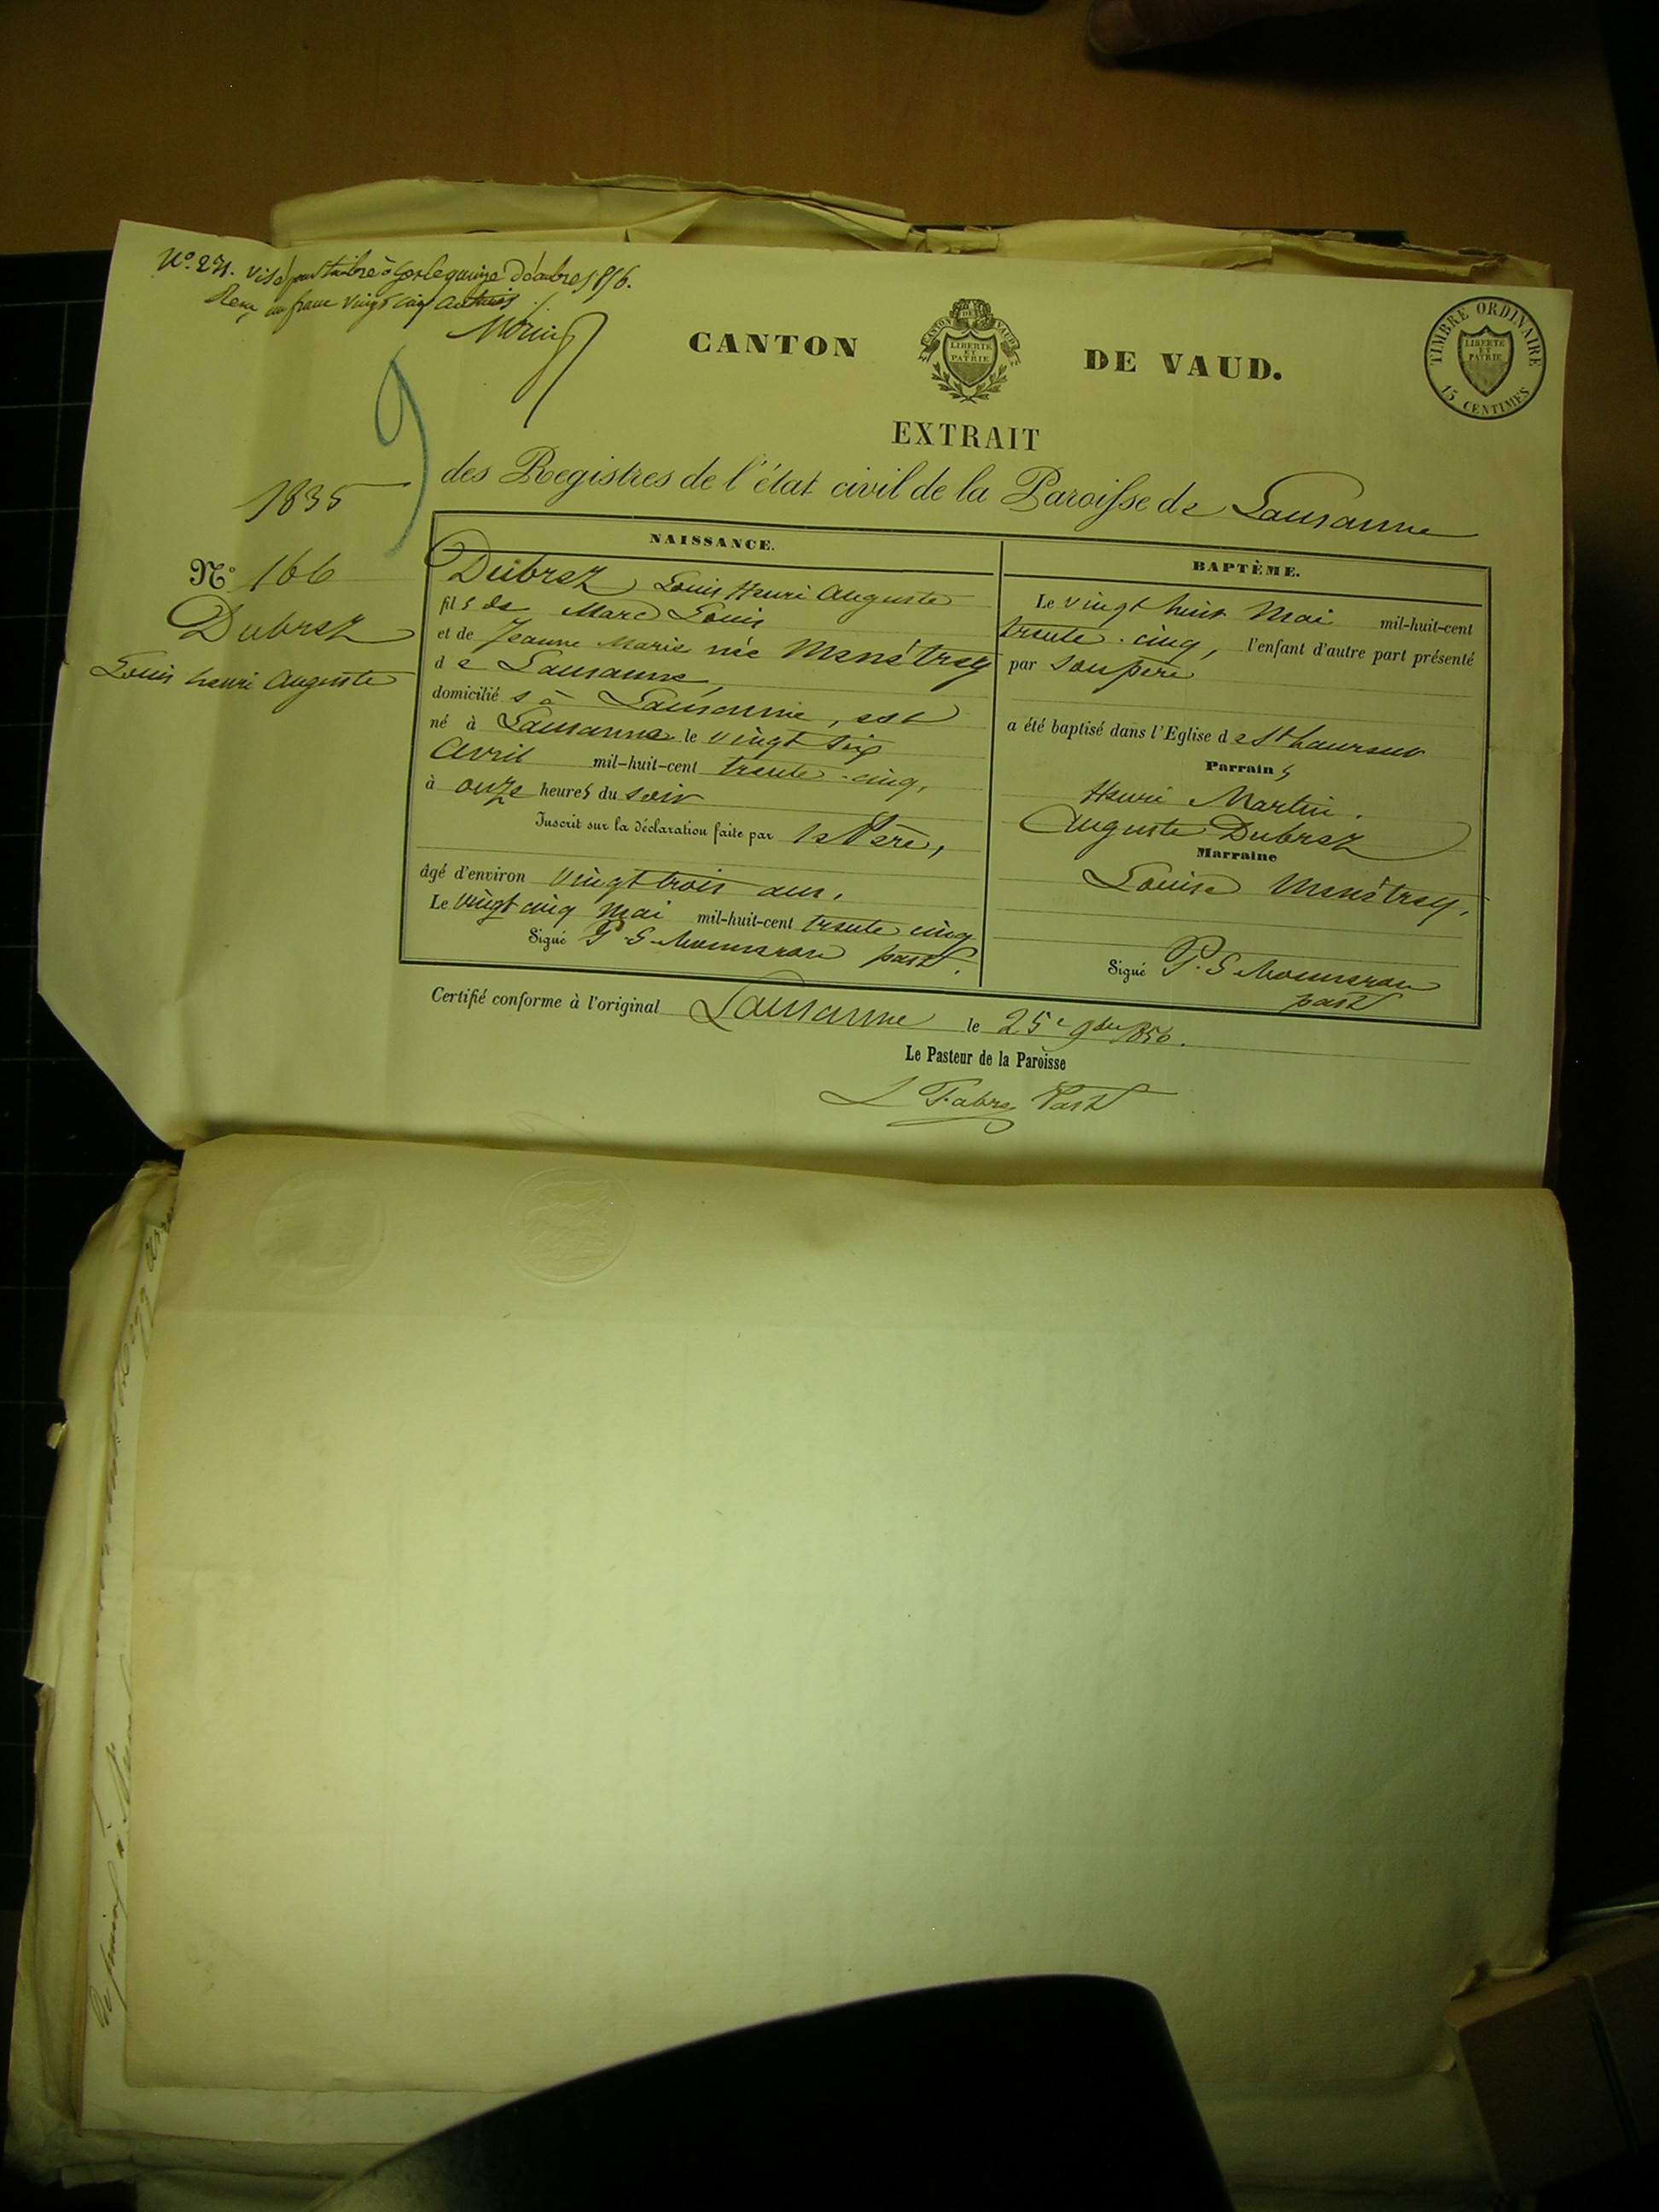 N° 271. Visé pour timbre à Gex le quinze Décembre 1856.
Reçu un franc vingt cinq centimes
CANTON DE VAUD.
CANTON DE VAUD
LIBERTÉ
ET
PATRIE
TIMBRE ORDINAIRE
LIBERTÉ
ET
PATRIE
15 CENTIMES
EXTRAIT
9
des Registres de l'état civil de la Paroisse de Lausanne
1835
N° 166
Dubrez
Louis henri Auguste
NAISSANCE.
Dubrez Louis Henri Auguste
fils de Marc Louis
et de Jeanne Marie née Menétrey
de Lausanne,
domiciliés à Lausanne, est
né à Lausanne le vingt six
Avril mil-huit-cent trente-cinq,
à onze heures du soir
Inscrit sur la déclaration faite par le Père,
âgé d'environ vingt trois ans.
Le vingt cinq Mai mil-huit-cent trente cinq
Signé P S Monneron past.
BAPTÈME.
Le vingt huit Mai mil-huit-cent
trente-cinq, l'enfant d'autre part présenté
par son père
a été baptisé dans l'Eglise de St Laurent
Parrains
Henri Martin.
Auguste Dubrez
Marraine
Louise Menétrey.
Signé P. S Monneron
past
Certifié conforme à l'original Lausanne le 25e 9bre 1856.
Le Pasteur de la Paroisse
L Fabre, Past